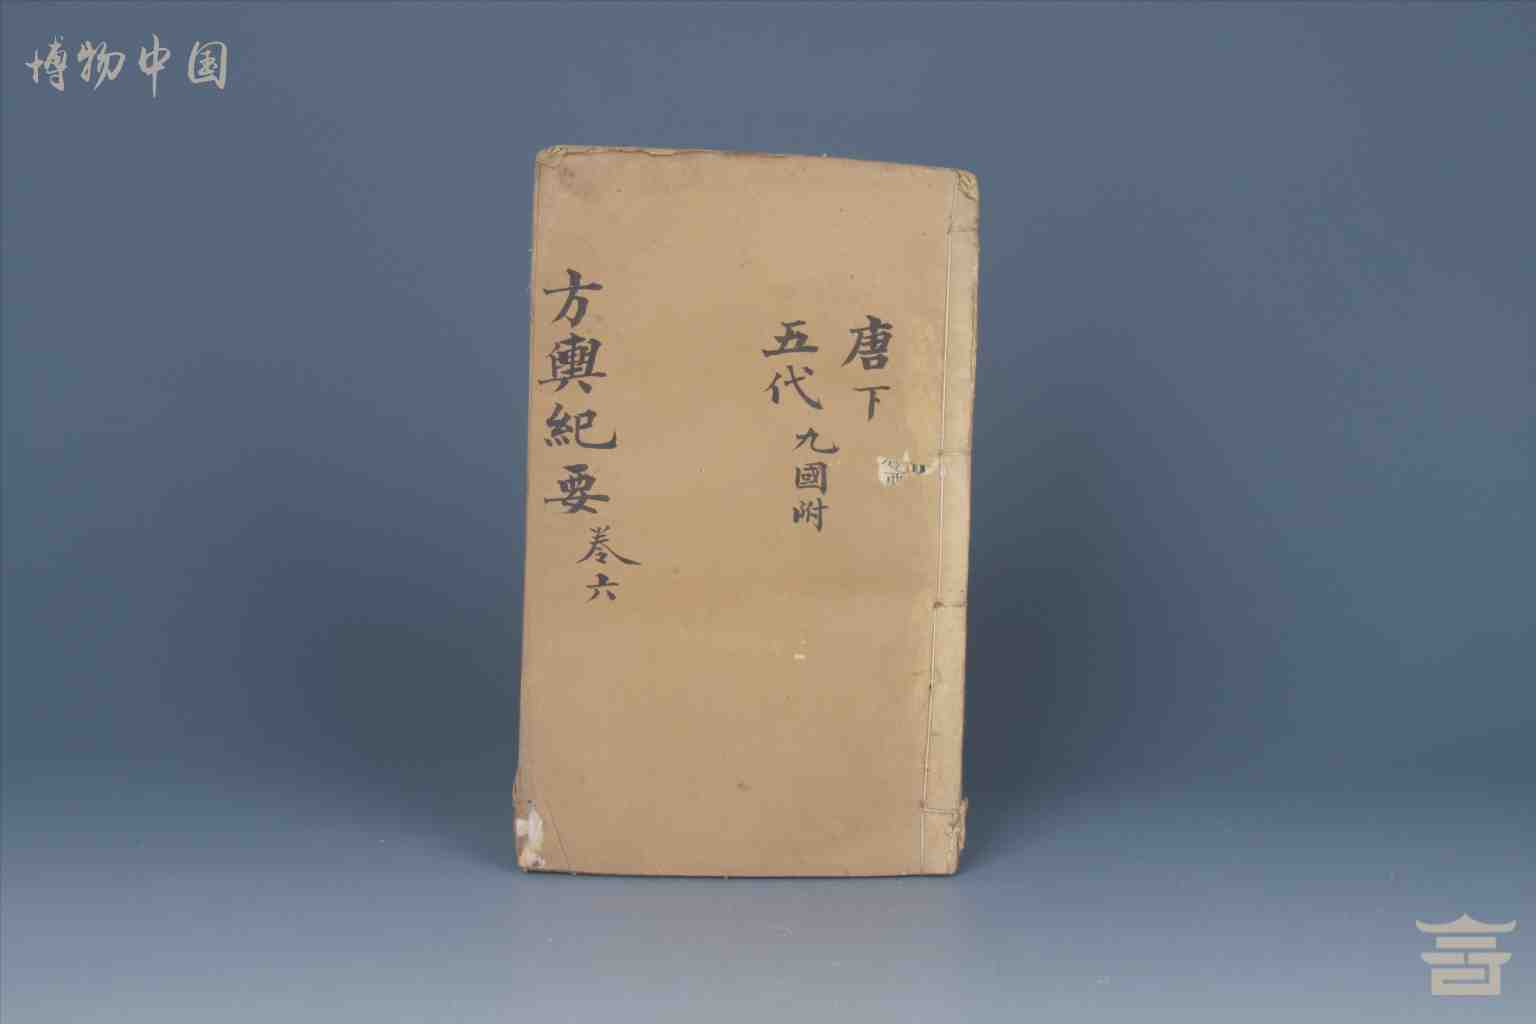 博物中国
唐下
五代九國附
方輿紀要卷六